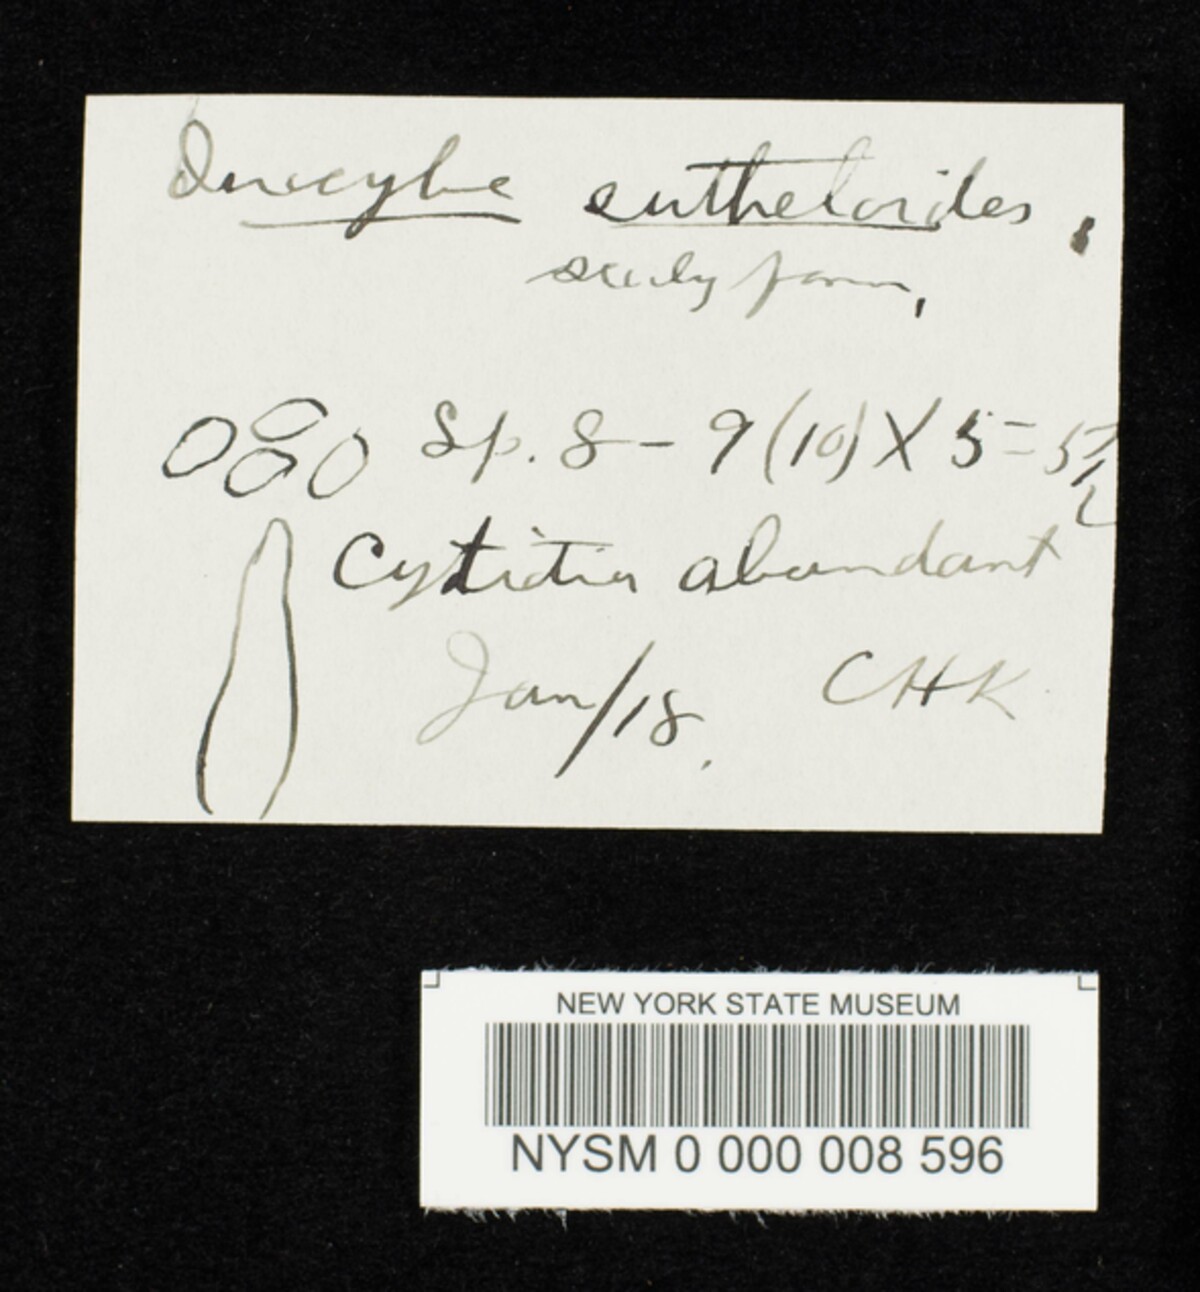 Inocybe eutheloides,
scaly form,
Sp. 8-9(10) X 5=5 1/2
Cystidia abundant
Jan/18. CHK
NEW YORK STATE MUSEUM
NYSM 0 000 008 596